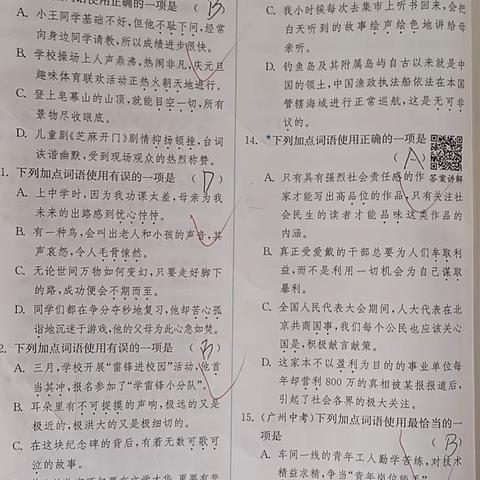 词语使用正确的一项是 （B）
A. 小王同学基础不好,但他不耻下问,经常
向身边同学请教,所以成绩进步很快。
B. 学校操场上人声鼎沸,热闹非凡,庆元旦
趣味体育联欢活动正热火朝天地进行。
C. 登上皂幕山的山顶,就能目空一切,所有
景物尽收眼底。
D. 儿童剧《芝麻开门》剧情抑扬顿挫,台词
诙谐幽默,受到现场观众的热烈称赞。
1. 下列加点词语使用有误的一项是 （D）
A. 上中学时,因为我功课太差,母亲为我
未来的出路感到忧心忡忡。
B. 有一种鸟,会叫出老人和小孩的声音,其
声哀怨,令人毛骨悚然。
C. 无论世间万物如何变幻,只要走好脚下
的路,成功便会不期而至。
D. 同学们都在争分夺秒地复习,他却苦心孤
诣地沉迷于游戏,他的父母为此心急如焚。
2. 下列加点词语使用有误的一项是 （B）
A. 三月,学校开展“雷锋进校园”活动,他首
当其冲,报名参加了“学雷锋小分队”。
B. 耳朵里有不可捉摸的声响,极远的又是
极近的,极洪大的又是极细切的。
C. 在这块纪念碑的背后,有着无数可歌可
泣的故事。
C. 我小时候每次去集市上听书回来,会把
白天听到的故事绘声绘色地讲给母
亲听。
D. 钓鱼岛及其附属岛屿自古以来就是中
国的领土,中国渔政执法船依法在本国
管辖海域进行正常巡航,这是无可非
议的。
14. *下列加点词语使用正确的一项是
（A）
答案讲解
A. 只有具有强烈社会责任感的作
家才能写出高品位的作品,只有关注社
会民生的读者才能品味这类作品的
内涵。
B. 真正受爱戴的干部总要为人们牟取利
益,而不是利用一切机会为自己谋取
暴利。
C. 全国人民代表大会期间,人大代表在北
京共商国事,我们每个公民也应该关心
国是,积极献言献策。
D. 这家本不以盈利为目的的事业单位每
年却营利 800 万的真相被某报报道后,
引起了社会各界的极大关注。
15. (广州中考)下列加点词语使用最恰当的一
项是 （B）
A. 车间一线的青年工人勤学苦练,对技术
精益求精,争当“青年岗位能手”